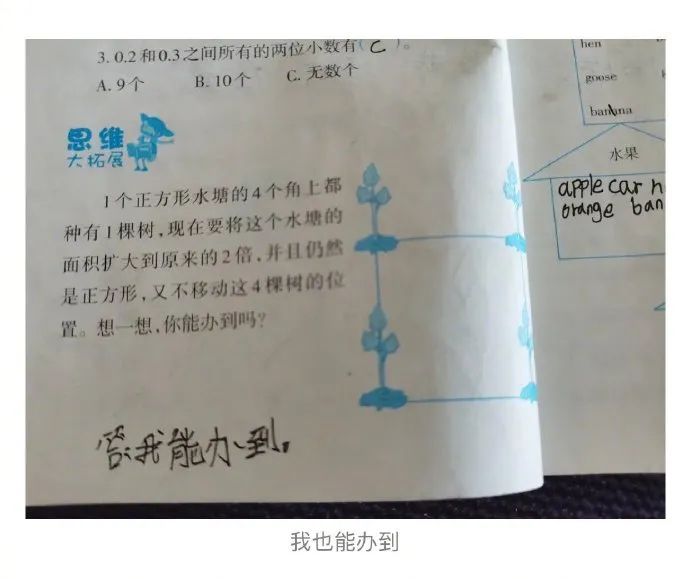 3. 0.2和0.3之间所有的两位小数有(C)。
A. 9个 B. 10个 C. 无数个
思维
大拓展
1个正方形水塘的4个角上都
种有1棵树,现在要将这个水塘的
面积扩大到原来的2倍,并且仍然
是正方形,又不移动这4棵树的位
置。想一想,你能办到吗?
答:我能办到。
hen
goose
banana
水果
apple car
orange ban
我也能办到